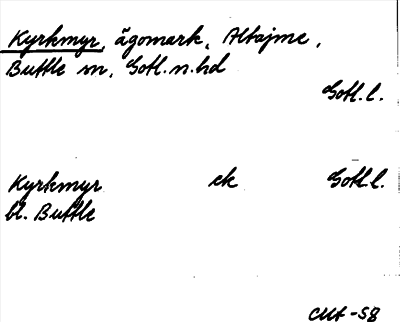 Kyrkmyr, ägomark, Altajme,
Buttle sn, Gotl.n.hd
Gotl.l.
Kyrkmyr ek Gotl.l.
bl. Buttle
CMA-58